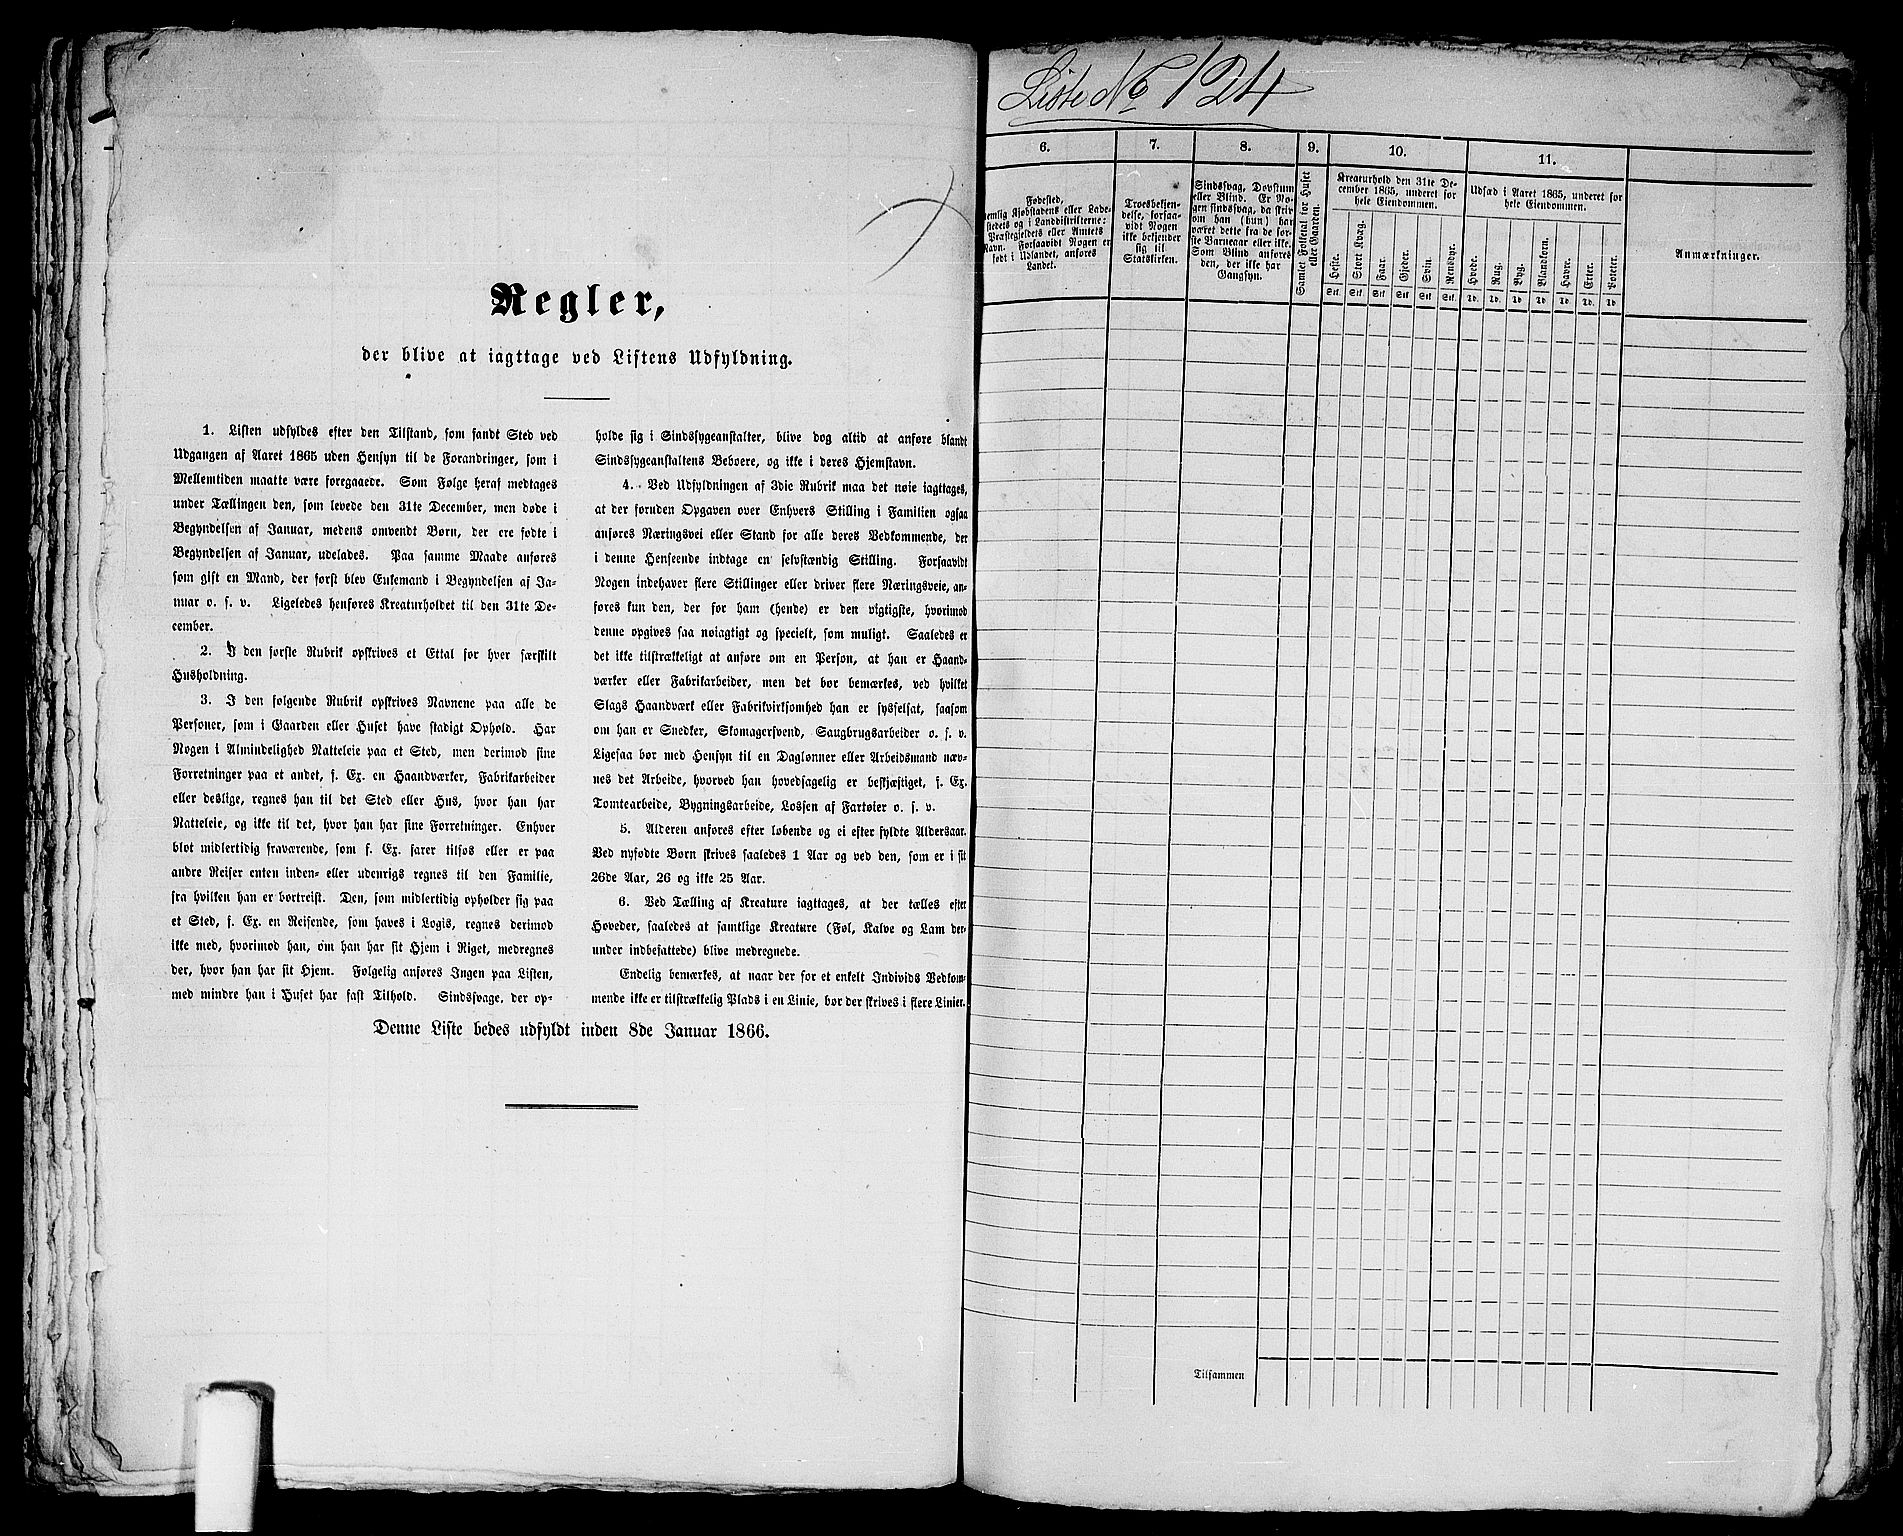 Regler,
der blive at iagttage ved Listens Udfyldning.
1. Listen udfyldes efter den Tilstand, som fandt Sted ved
Udgangen af Aaret 1865 uden Hensyn til de Forandringer, som i
Mellemtiden maatte være foregaaede. Som Følge heraf medtages
under Tællingen den, som levede den 31te December, men døde i
Begyndelsen af Januar, medens omvendt Børn, der ere fødte i
Begyndelsen af Januar, udelades. Paa samme Maade anføres
som gift en Mand, der først blev Enkemand i Begyndelsen af Ja-
nuar o. s. v. Ligeledes henføres Kreaturholdet til den 31te De-
cember.
2. I den første Rubrik opskrives et Ettal for hver særskilt
Husholdning.
3. I den følgende Rubrik opskrives Navnene paa alle de
Personer, som i Gaarden eller Huset have stadigt Ophold. Har
Nogen i Almindelighed Natteleie paa et Sted, men derimod sine
Forretninger paa et andet, f. Ex. en Haandværker, Fabrikarbeider
eller deslige, regnes han til det Sted eller Hus, hvor han har
Natteleie, og ikke til det, hvor han har sine Forretninger. Enhver
blot midlertidig fraværende, som f. Ex. farer tilsøs eller er paa
andre Reiser enten inden- eller udenrigs regnes til den Familie,
fra hvilken han er bortreist. Den, som midlertidig opholder sig paa
et Sted, f. Ex. en Reisende, som haves i Logis, regnes derimod
ikke med, hvorimod han, om han har sit Hjem i Riget, medregnes
der, hvor han har sit Hjem. Følgelig anføres Ingen paa Listen,
med mindre han i Huset har fast Tilhold. Sindssvage, der op-
holde sig i Sindssygeanstalter, blive dog altid at anføre blandt
Sindssygeanstaltens Beboere, og ikke i deres Hjemstavn.
4. Ved Udfyldningen af 3die Rubrik maa det nøie iagttages,
at der foruden Opgaven over Enhvers Stilling i Familien ogsaa
anføres Næringsvei eller Stand for alle deres Vedkommende, der
i denne Henseende indtage en selvstændig Stilling. Forsaavidt
Nogen indehaver flere Stillinger eller driver flere Næringsveie, an-
føres kun den, der for ham (hende) er den vigtigste, hvorimod
denne opgives saa nøiagtigt og specielt, som muligt. Saaledes er
det ikke tilstrækkeligt at anføre om en Person, at han er Haand-
værker eller Fabrikarbeider, men det bør bemærkes, ved hvilket
Slags Haandværk eller Fabrikvirksomhed han er sysselsat, saasom
om han er Snedker, Skomagersvend, Saugbrugsarbeider o. s. v.
Ligesaa bør med Hensyn til en Daglønner eller Arbeidsmand næv-
nes det Arbeide, hvorved han hovedsagelig er beskjæftiget, f. Ex.
Tomtearbeide, Bygningsarbeide, Lossen af Fartøier o. s. v.
5. Alderen anføres efter løbende og ei efter fyldte Aldersaar.
Ved nyfødte Børn skrives saaledes 1 Aar og ved den, som er i sit
26de Aar, 26 og ikke 25 Aar.
6. Ved Tælling af Kreature iagttages, at der tælles efter
Hoveder, saaledes at samtlige Kreature (Føl, Kalve og Lam der-
under indbefattede) blive medregnede.
Endelig bemærkes, at naar der for et enkelt Individs Vedkom-
mende ikke er tilstrækkelig Plads i en Linie, bør der skrives i flere Linier.
Denne Liste bedes udfyldt inden 8de Januar 1866.
Liste No 124
6.
7.
8.
9.
10.
11.
Fødested,
nemlig Kjøbstadens eller Lade-
stedets og i Landdistrikterne:
Præstegjeldets eller Amtets
Navn. Forsaavidt Nogen er
født i Udlandet, anføres
Landet.
Troesbekjen-
delse, forsaa-
vidt Nogen
ikke bekjender
sig til
Statskirken.
Sindssvag, Døvstum
eller Blind. Er No-
gen sindssvag, da skriv
om han (hun) har
været dette fra de før-
ste Barneaar eller ikke.
Som Blind anføres
den, der ikke har
Gangsyn.
Gamlet Folketal for Huset
eller Gaarden.
Kreaturhold den 31te De-
cember 1865, underet for
hele Eiendommen.
Heste.
Stort Kvæg.
Faar.
Gjeder.
Svin.
Rensdyr.
Stk.
Stk.
Stk.
Stk.
Stk.
Stk.
Udsæd i Aaret 1865, underet for
hele Eiendommen.
Hvede.
Rug.
Byg.
Blandkorn.
Havre.
Erter.
Poteter.
Td.
Td.
Td.
Td.
Td.
Td.
Td.
Anmærkninger.
Tilsammen